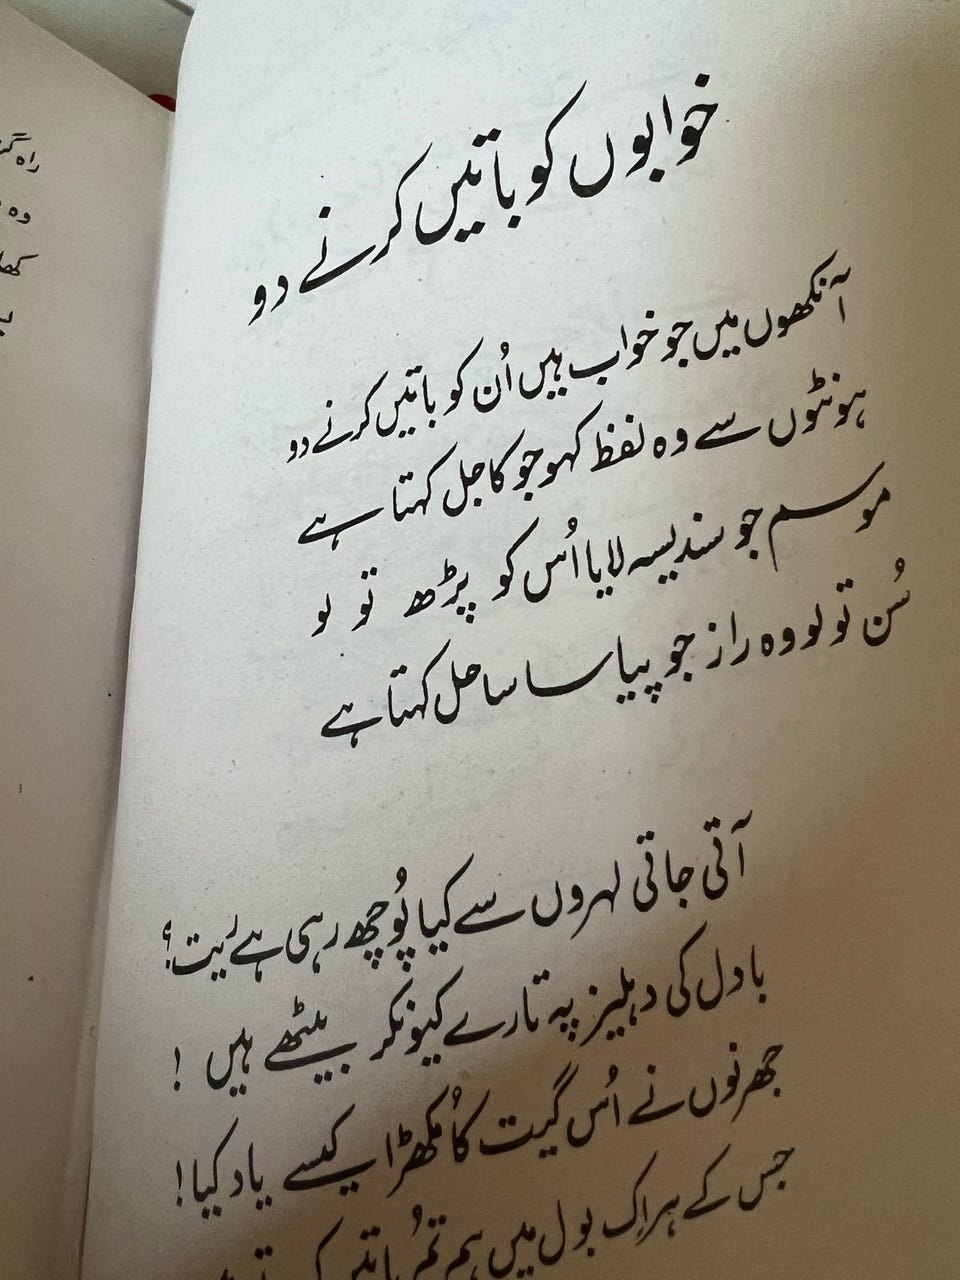 خوابوں کو باتیں کرنے دو
آنکھوں میں جو خواب ہیں اُن کو باتیں کرنے دو
ہونٹوں سے وہ لفظ کہو جو کاجل کہتا ہے
موسم جو سندیسہ لایا اُس کو پڑھ تو لو
سُن تو لو وہ راز جو پیاسا ساحل کہتا ہے
آتی جاتی لہروں سے کیا پُوچھ رہی ہے ریت؟
بادل کی دہلیز پہ تارے کیونکر بیٹھے ہیں !
جھرنوں نے اُس گیت کا مُکھڑا کیسے یاد کیا!
جس کے ہر اِک بول میں ہم تُم باتیں
راہ
وہ